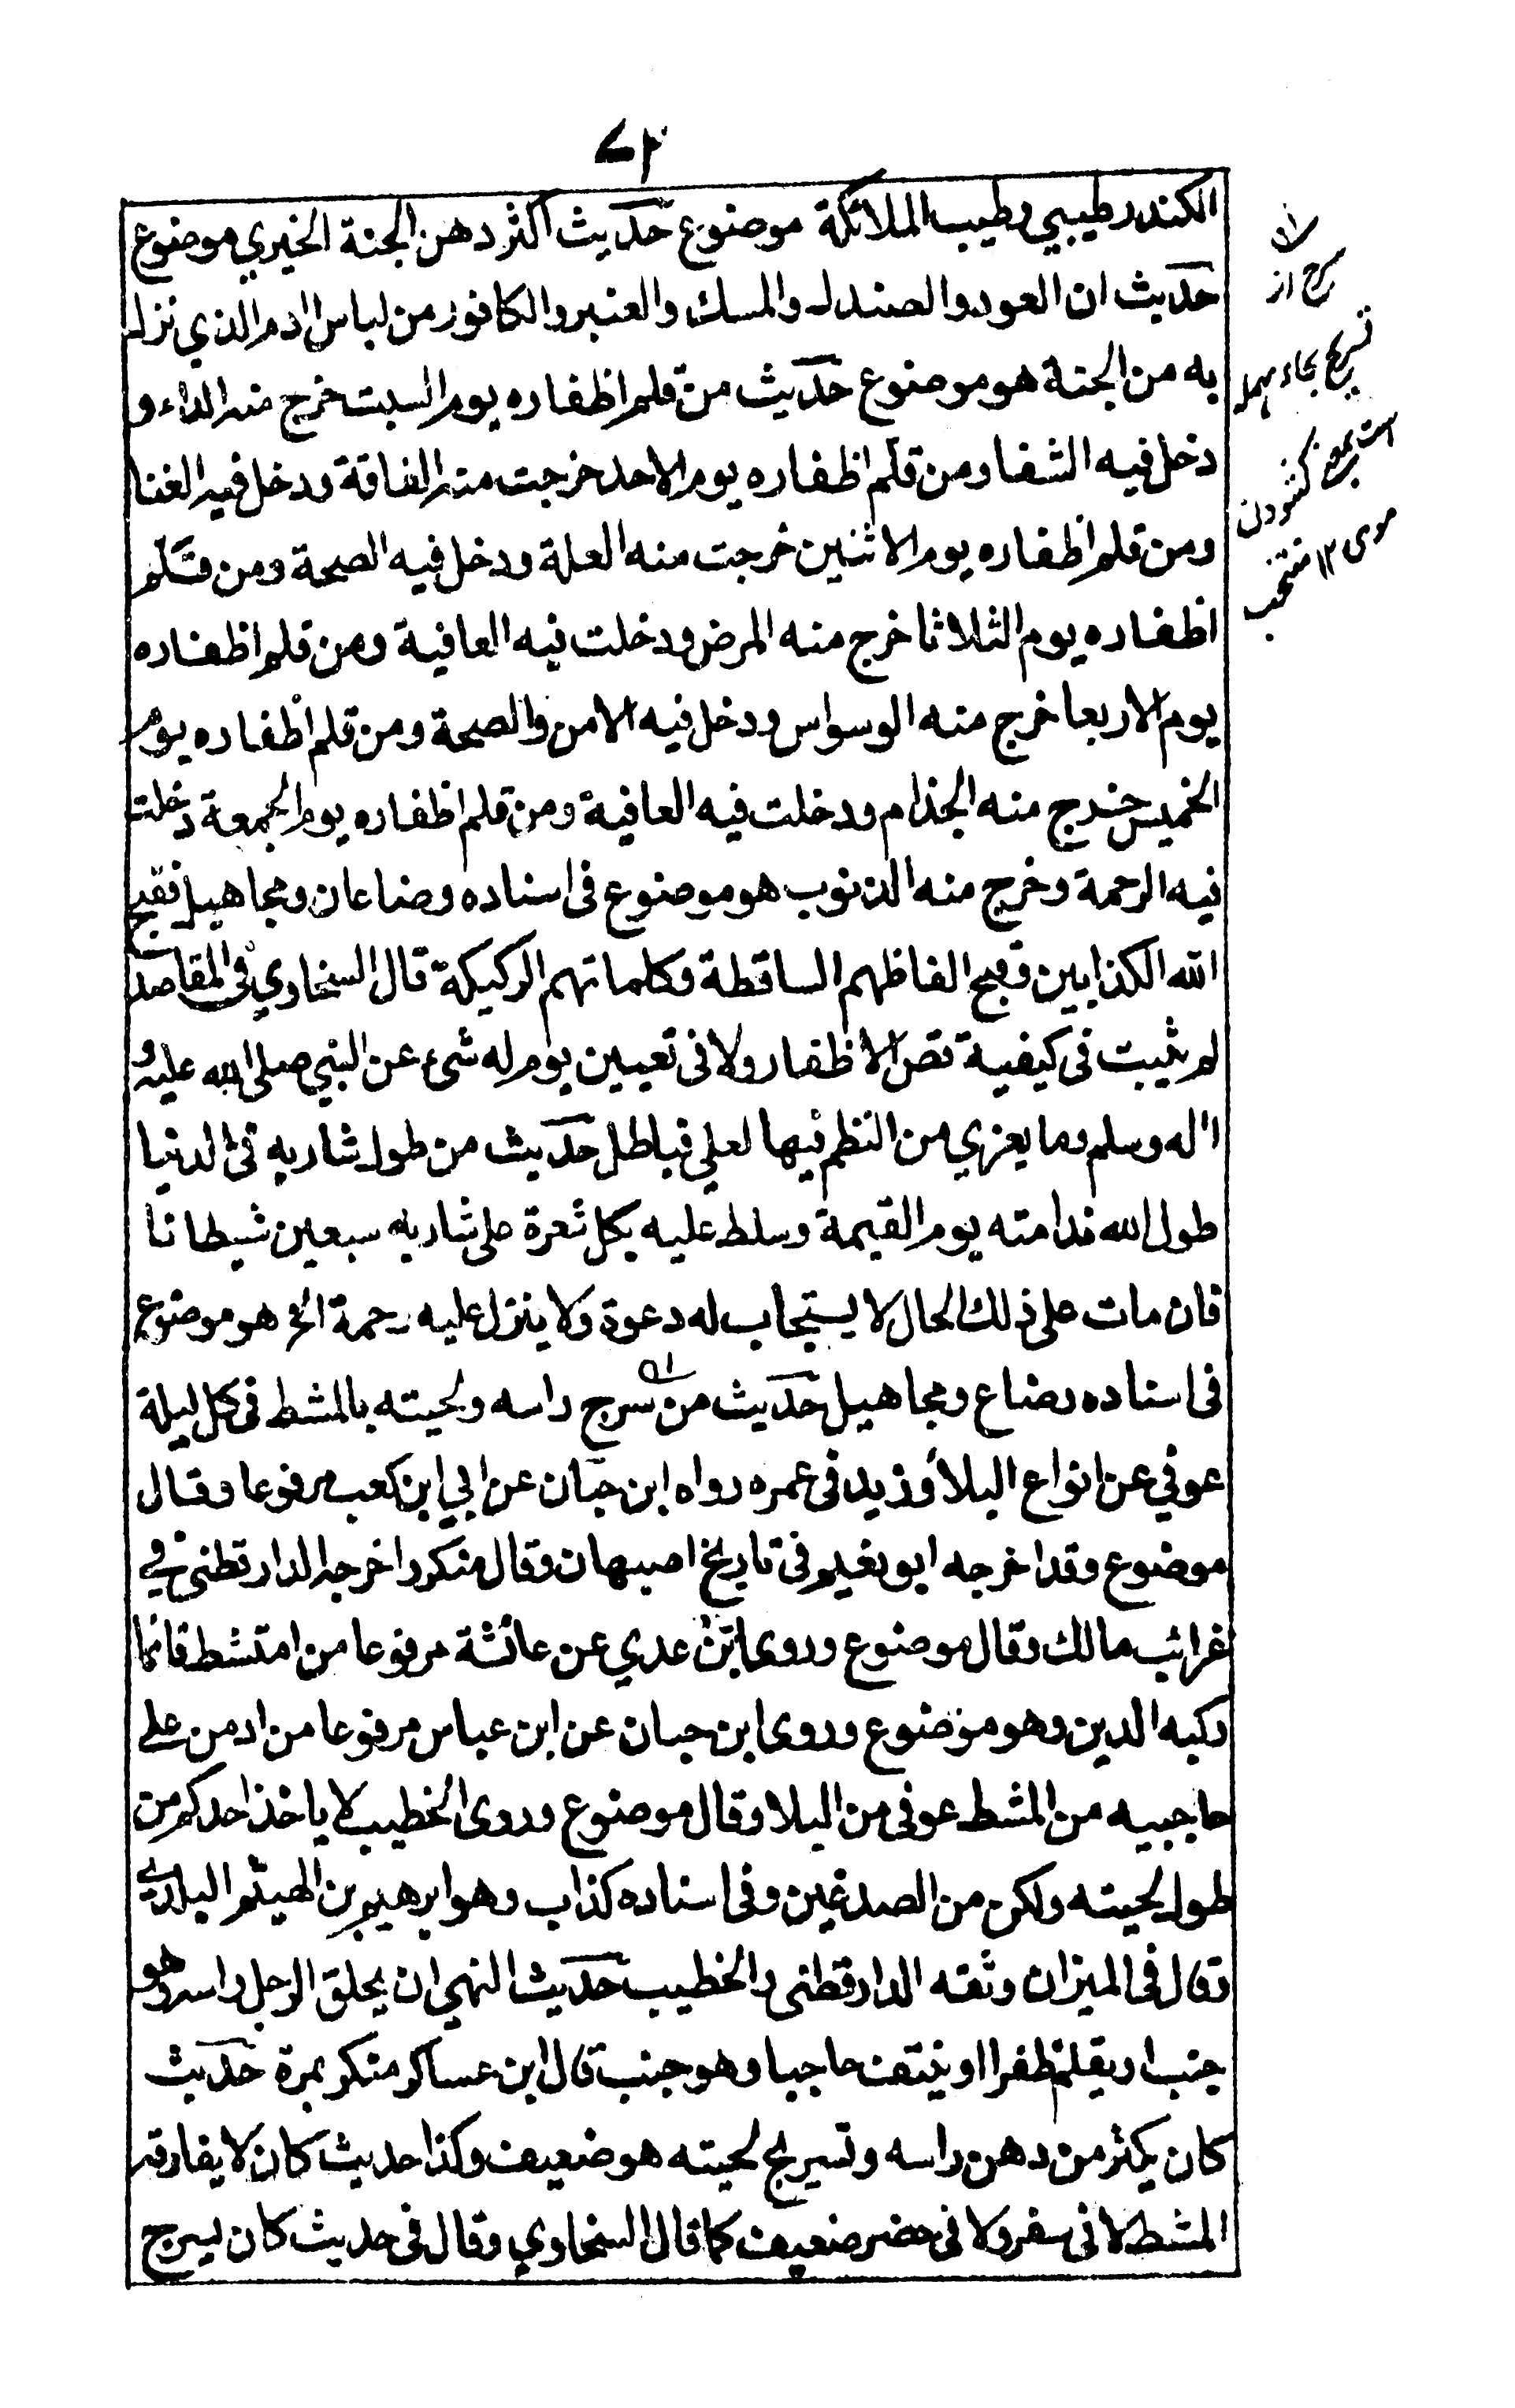 ٧٢
الكندر طيبي وطيب الملائكة موضوع حديث اكثر دهن الجنة الخيري موضوع
حديث ان العود والصندل والمسك والعنبر والكافور من لباس ادم الذي نزل
به من الجنة هو موضوع حديث من قلم اظفاره يوم السبت خرج منه الداء و
دخل فيه الشفا ومن قلم اظفاره يوم الاحد خرجت منه الفاقة ودخل فيه الغنا
ومن قلم اظفاره يوم الاثنين خرجت منه العلة ودخل فيه الصحة ومن قلم
اظفاره يوم الثلاثا خرج منه المرض ودخلت فيه العافية ومن قلم اظفاره
يوم الاربعا خرج منه الوسواس ودخل فيه الامن والصحة ومن قلم اظفاره يوم
الخميس خرج منه الجذام ودخلت فيه العافية ومن قلم اظفاره يوم الجمعة دخلت
فيه الرحمة وخرج منه الذنوب هو موضوع فى اسناده وضاعان ومجاهيل فقبح
الله الكذابين وقبح الفاظهم الساقطة وكلماتهم الركيكة قال السخاوي فى المقاصد
لم يثبت فى كيفية قص الاظفار ولا فى تعيين يوم له شىء عن النبي صلى الله عليه و
اله وسلم وما يعزي من النظم فيها لعلي فباطل حديث من طول شاربه فى الدنيا
طول الله ندامته يوم القيمة وسلط عليه بكل شعرة على شاربه سبعين شيطانا
فان مات على ذلك الحال لا يستجاب له دعوة ولا ينزل عليه رحمة الخ هو موضوع
فى اسناده وضاع ومجاهيل حديث من سرح راسه ولحيته بالمشط فى كل ليلة
عوفي عن انواع البلا وزيد فى عمره رواه ابن حبان عن ابي ابن كعب مرفوعا وقال
موضوع وقد اخرجه ابو نعيم فى تاريخ اصبهان وقال منكر واخرجه الدارقطنى في
غرائب مالك وقال موضوع وروى ابن عدي عن عائشة مرفوعا من امتشط قائما
ركبه الدين وهو موضوع وروى ابن حبان عن ابن عباس مرفوعا من ادمن على
حاجبيه من المشط عوفى من البلا وقال موضوع وروى الخطيب لا ياخذ احدكم من
طول لحيته ولكن من الصدغين وفى اسناده كذاب وهو ابرهيم بن الهيثم البلدي
وقال فى الميزان وثقه الدارقطنى والخطيب حديث النهي ان يحلق الرجل راسه وهو
جنب او يقلم ظفرا او ينتف حاجبا وهو جنب قال ابن عساكر منكر بمرة حديث
كان يكثر من دهن راسه وتسريح لحيته هو ضعيف وكذا حديث كان لا يفارقه
المشط لا فى سفر ولا فى حضر ضعيف كما قال السخاوي وقال فى حديث كان يسرح
سرح از
تسريح بحاء مهمله
است بمعنى كشودن
موى ١٢ منتخب